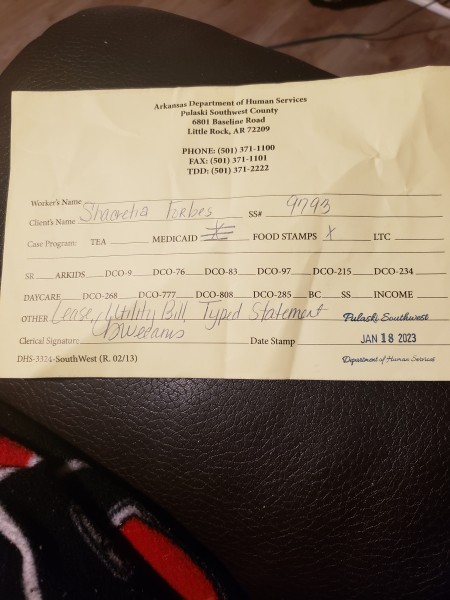 Arkansas Department of Human Services
Pulaski Southwest County
6801 Baseline Road
Little Rock, AR 72209
PHONE: (501) 371-1100
FAX: (501) 371-1101
TDD: (501) 371-2222
Worker's Name
Client's Name Forbes SS# 9793
Case Program: TEA MEDICAID FOOD STAMPS X LTC
SR ARKIDS DCO-9 DCO-76 DCO-83 DCO-97 DCO-215 DCO-234
DAYCARE DCO-268 DCO-777 DCO-808 DCO-285 BC SS INCOME
OTHER Lease, Utility Bill, Typed Statement Pulaski Southwest
Clerical Signature Date Stamp JAN 18 2023
DHS-3324-SouthWest (R. 02/13) Department of Human Services